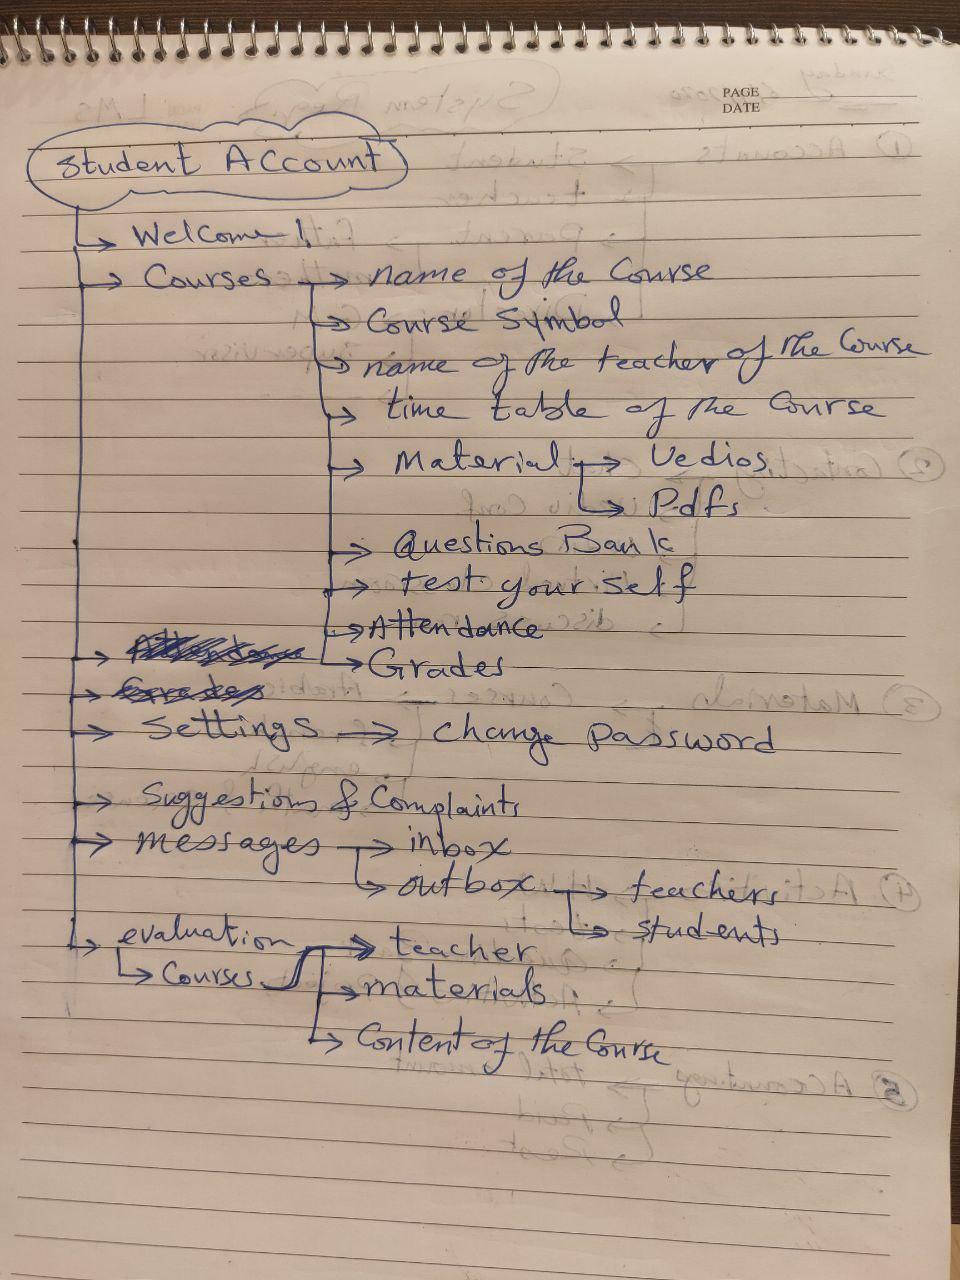 PAGE
DATE
Student Account
Welcome!
Courses → name of the Course
→ Course Symbol
→ name of the teacher of the Course
→ time table of the Course
→ Material → Vedios
→ Pdfs
→ Questions Bank
→ test your self
→ Attendance
→ Grades
Settings → Change Password
Suggestions & Complaints
messages → inbox
→ outbox → teachers
→ students
evaluation → teacher
→ Courses
→ materials
→ Content of the Course